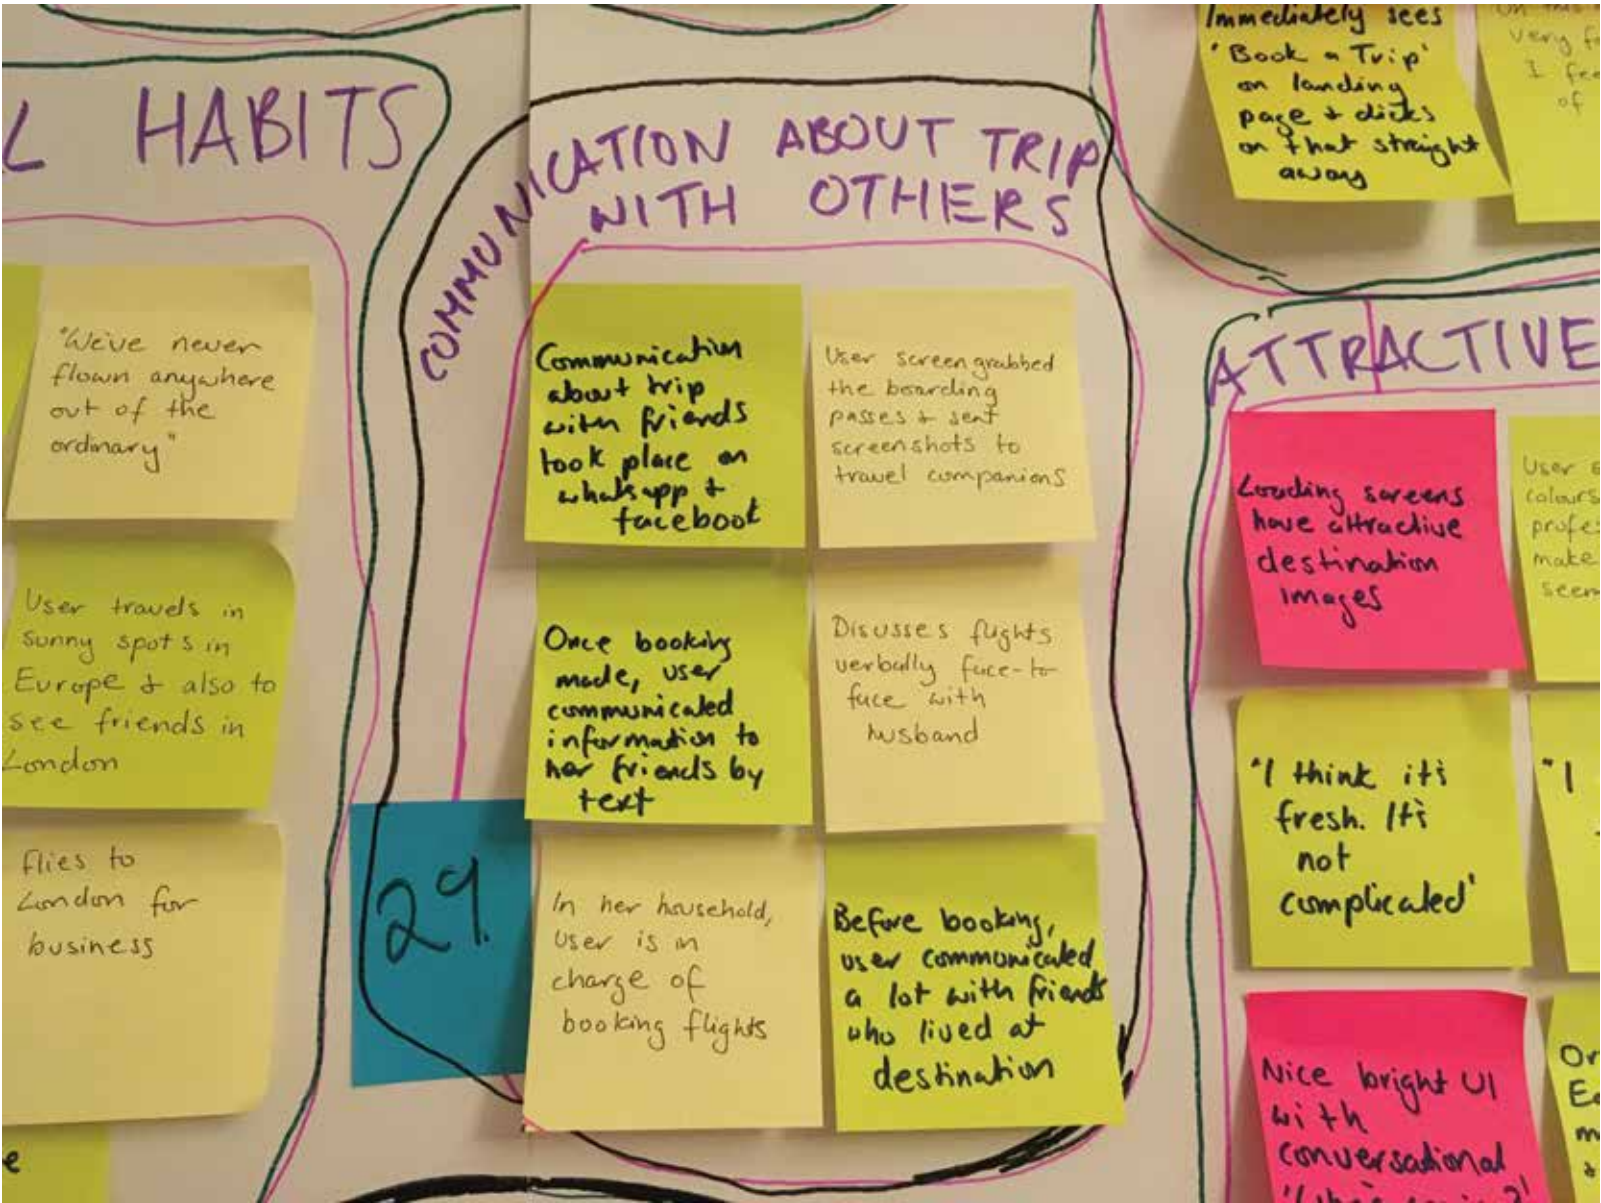 L HABITS
"We've never
flown anywhere
out of the
ordinary"
User travels in
sunny spots in
Europe & also to
see friends in
London
flies to
London for
business
e
COMMUNICATION ABOUT TRIP
WITH OTHERS
Communication
about trip
with friends
took place on
whatsapp &
facebook
User screengrabbed
the boarding
passes & sent
screenshots to
travel companions
Once booking
made, user
communicated
information to
her friends by
text
Discusses flights
verbally face-to
face with
husband
29.
In her household,
User is in
charge of
booking flights
Before booking,
user communicated
a lot with friends
who lived at
destination
Immediately sees
'Book a Trip'
on landing
page & clicks
on that straight
away
very
I fee
of
ATTRACTIVE
Loading screens
have attractive
destination
images
User
colours
profes
make
seem
"I think it's
fresh. It's
not
complicated'
"I
Nice bright UI
with
conversational
Or
Ea
m
&